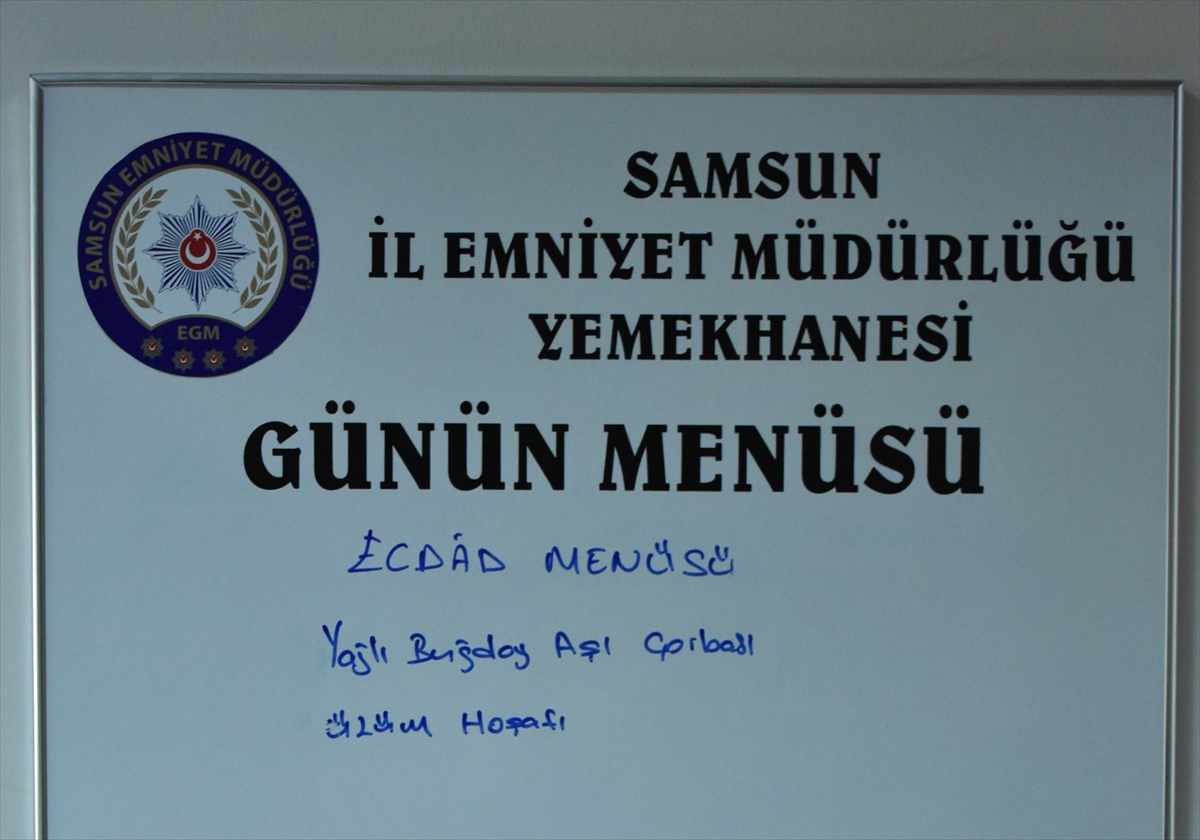 SAMSUN EMNİYET MÜDÜRLÜĞÜ
EGM
SAMSUN
İL EMNİYET MÜDÜRLÜĞÜ
YEMEKHANESİ
GÜNÜN MENÜSÜ
ECDÂD MENÜSÜ
Yağlı Buğday Aşı Çorbası
üzüm Hoşafı